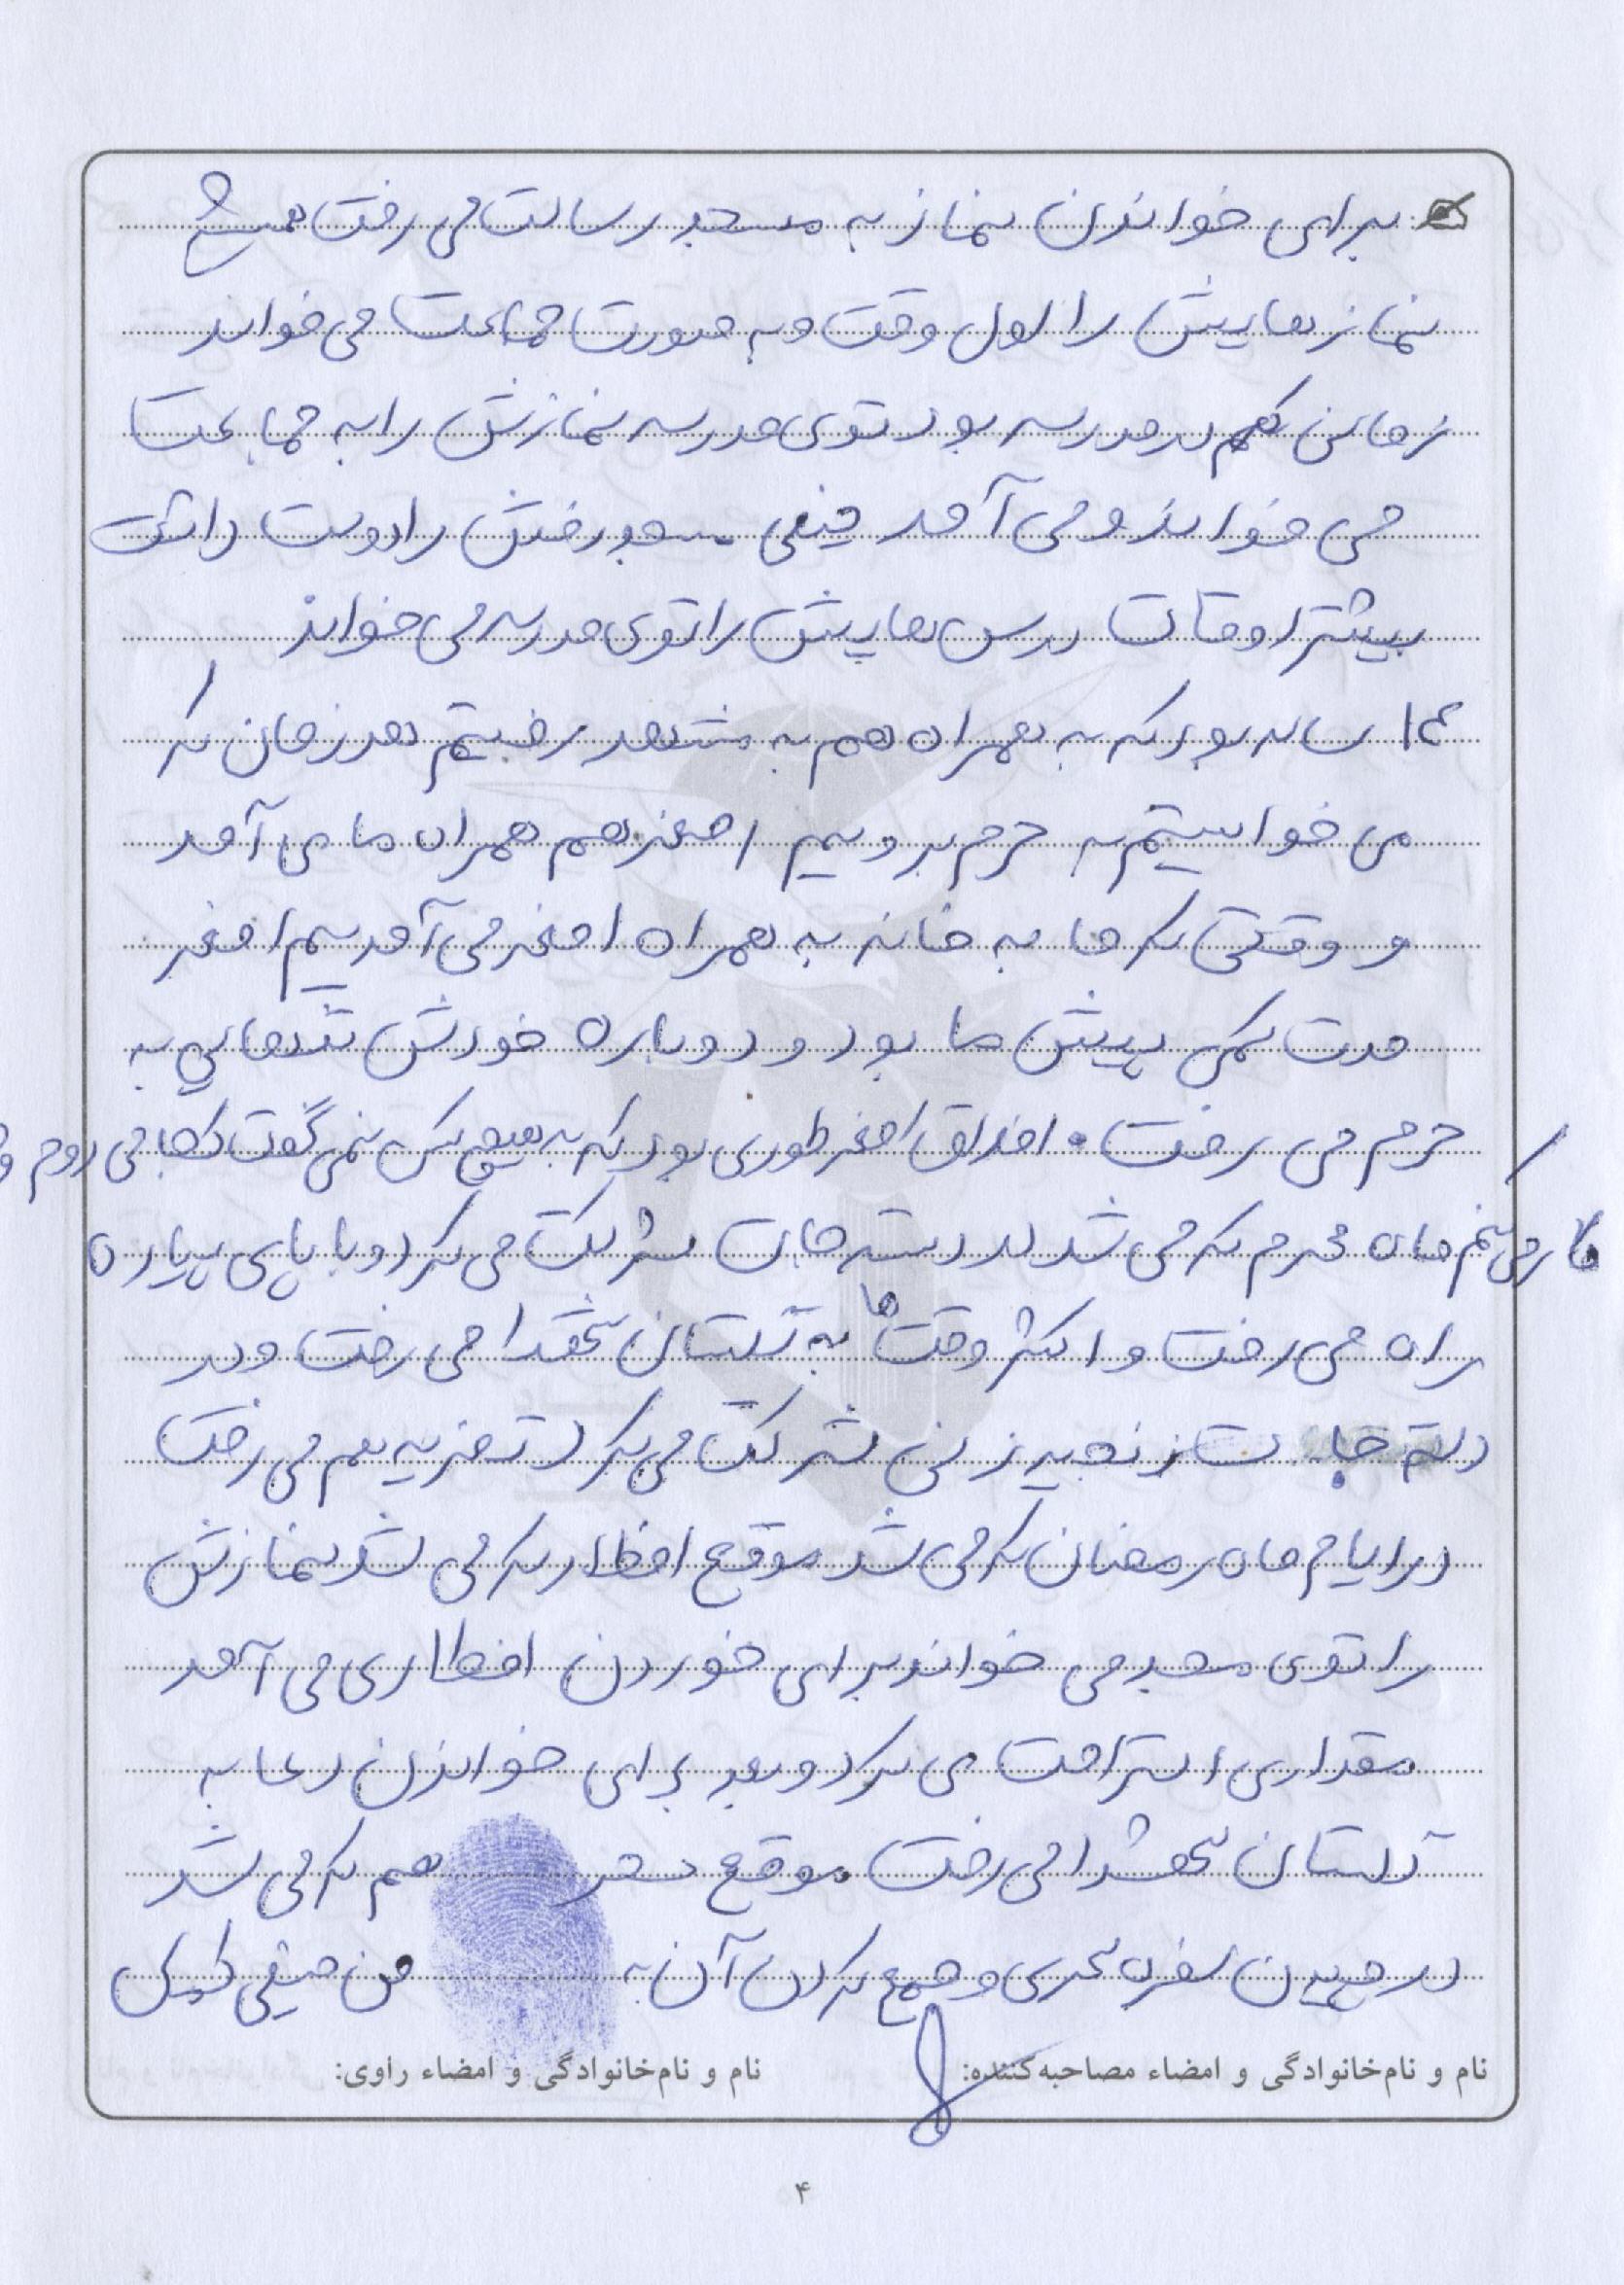 برای خواندن نماز به مسجد رسالت می رفت همیشه
نمازهایش را اول وقت و به صورت جماعت می خواند
زمانی که هم در مدرسه بود توی مدرسه نمازش را به جماعت
می خواند و می آمد خیلی مسجد رفتن را دوست داشت
بیشتر اوقات درس هایش را توی مدرسه می خواند
۱۴ ساله بود که به همراه هم به مشهد رفتیم هر زمان که
می خواستیم به حرم برویم اصغر هم همراه ما می آمد
و وقتی که ما به خانه به همراه اصغر می آمدیم اصغر
مدت کمی پیش ما بود و دوباره خودش تنهایی به
حرم می رفت . اخلاق اصغر طوری بود که به هیچ کس نمی گفت کجا می روم و
کار می کنم ماه محرم که می شد در دسته جات شرکت می کرد و با پای پیاده
راه می رفت و اکثر وقت ها به گلستان شهدا می رفت و در
دسته جات زنجیر زنی شرکت می کرد تعزیه هم می رفت
در ایام ماه رمضان که می شد موقع افطار که می شد نمازش
را توی مسجد می خواند برای خوردن افطاری می آمد
مقداری استراحت می کرد و بعد برای خواندن دعا به
گلستان شهدا می رفت موقع سحر هم که می شد
در چیدن سفره سحری و جمع کردن آن به من خیلی کمک
نام و نام‌خانوادگی و امضاء مصاحبه‌کننده:
نام و نام‌خانوادگی و امضاء راوی:
۴